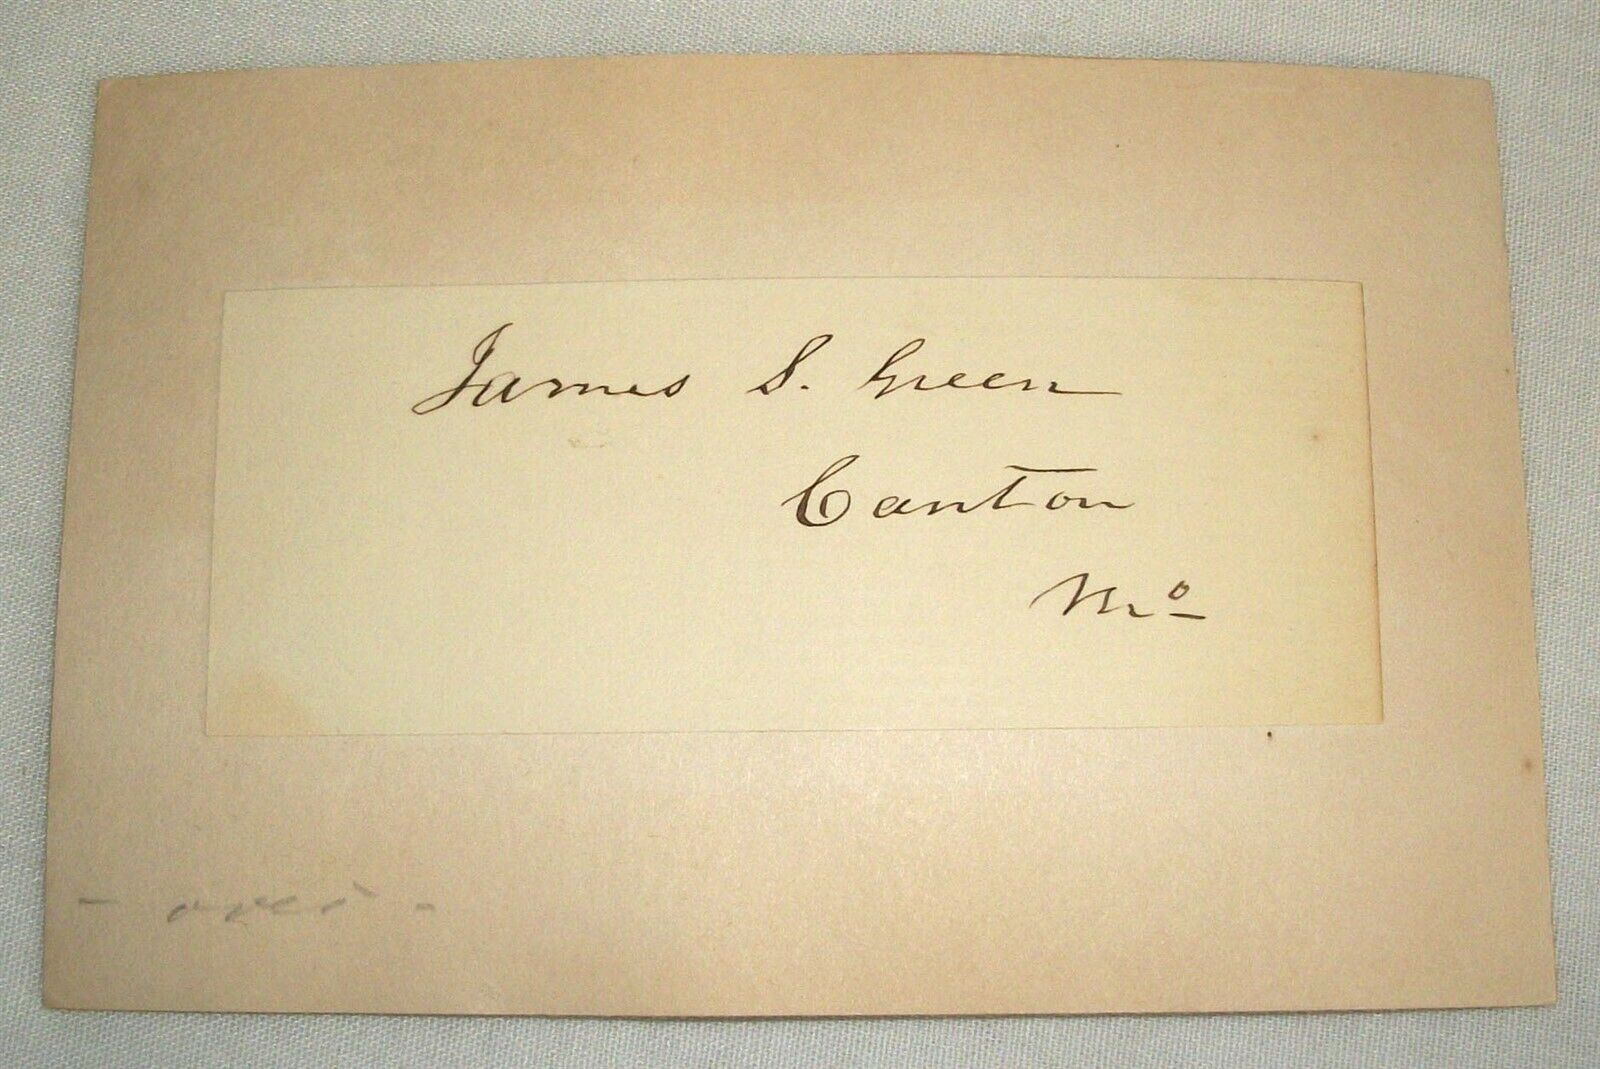 James S. Green
Canton
Mo
- over -